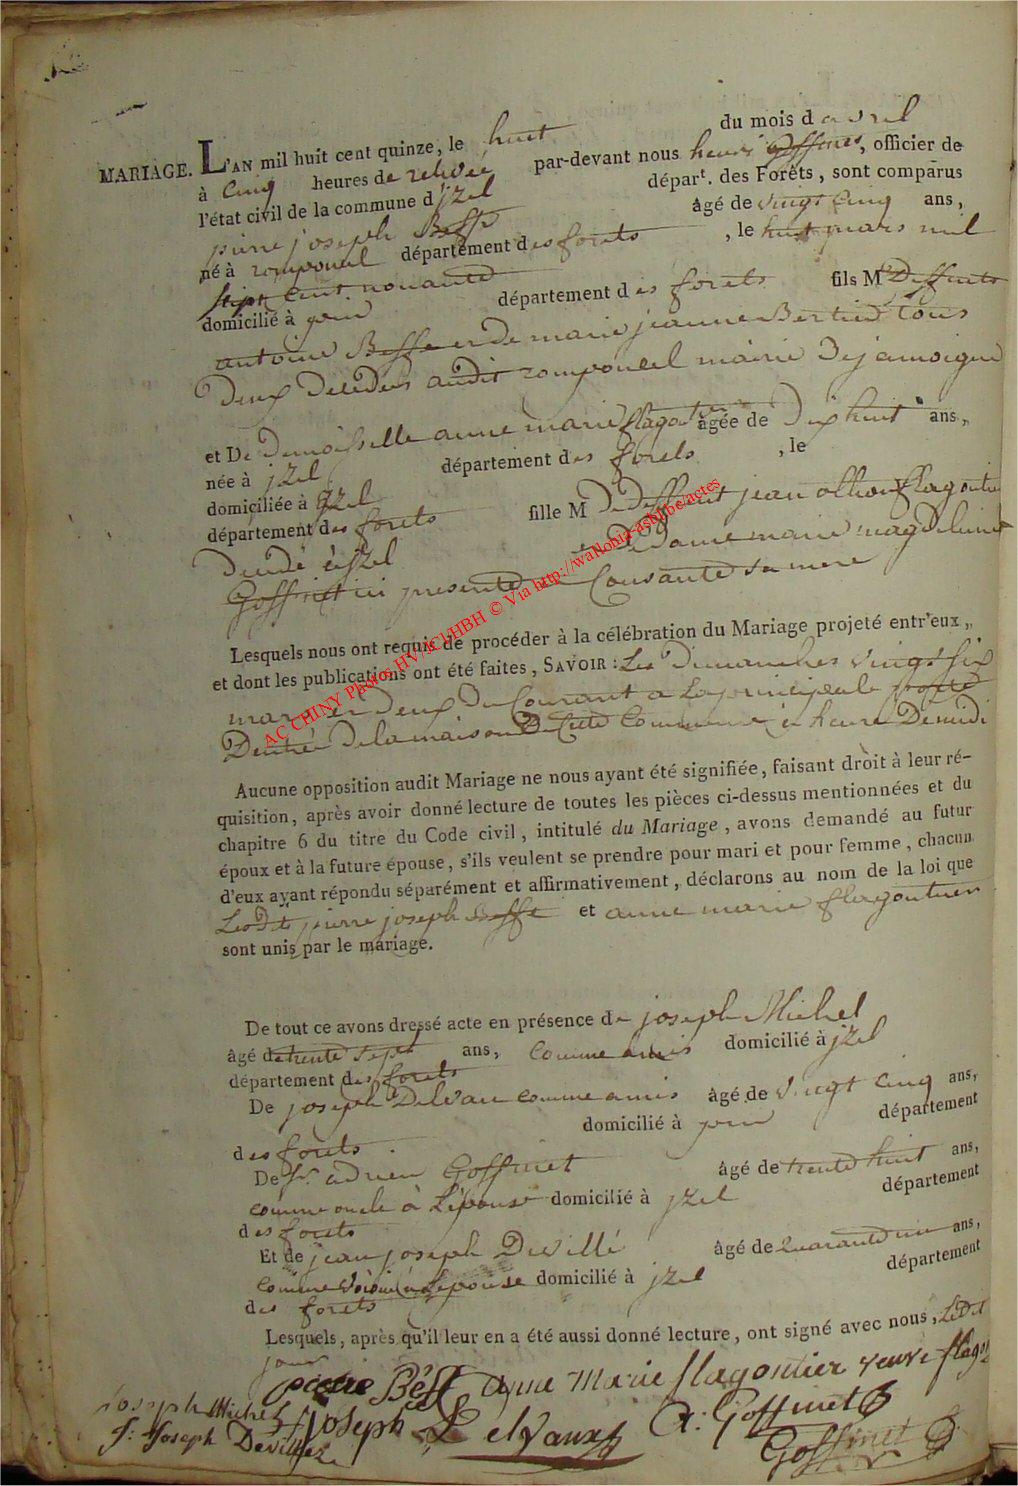 MARIAGE. L'AN mil huit cent quinze, le huit du mois d avril
à Cinq heures de relevée par-devant nous henri Goffinet, officier de
l'état civil de la commune d jzel départ. des Forêts, sont comparus
pierre joseph Besse âgé de vingt Cinq ans,
né à romponcel département des forets, le huit mars mil
Sept Cent nonante
domicilié à département des forets fils M Deffunts
antoine Besse et de marie jeanne tous
Deux Decedes audit romponcel mairie De jamoigne
et De Demoisselle anne marie flagontier âgée de Dix huit ans,
née à jzel département des forets, le
domiciliée à jzel
département des forets fille M De Deffunt jean flagontier
Decidé à jzel et De Dame marie magdeleine
Goffinet ici presente et Consante sa mere
Lesquels nous ont requis de procéder à la célébration du Mariage projeté entr'eux,
et dont les publications ont été faites, SAVOIR : Les Dimanches vingt six
mars et Deux Du Courant a La principale porte
Dentrée De la maison De Cette Commune à heure De midi
Aucune opposition audit Mariage ne nous ayant été signifiée, faisant droit à leur ré-
quisition, après avoir donné lecture de toutes les pièces ci-dessus mentionnées et du
chapitre 6 du titre du Code civil, intitulé du Mariage, avons demandé au futur
époux et à la future épouse, s'ils veulent se prendre pour mari et pour femme, chacun
d'eux ayant répondu séparément et affirmativement, déclarons au nom de la loi que
Lesdts pierre joseph Besse et anne marie flagontier
sont unis par le mariage.
De tout ce avons dressé acte en présence de joseph Michel
âgé de trente sept ans, comme amis domicilié à jzel
département des forets
De joseph Delvau comme amis âgé de vingt cinq ans,
domicilié à département
des forets
De Sr. adrien Goffinet âgé de trente huit ans,
comme oncle à L'épouse domicilié à jzel département
des forets
Et de jean joseph Devillé âgé de quarante un ans,
comme voisin à Lepouse domicilié à jzel département
des forets
Lesquels, après qu'il leur en a été aussi donné lecture, ont signé avec nous, Ledit
jour
pierre Besse anne marie flagontier veuve flagon
joseph Michel joseph Delvaux A: Goffinet
j: Joseph Devillez Goffinet
AC CHINY Photos HV/JCl/HBH © Via http://wallonia-asbl.be/actes